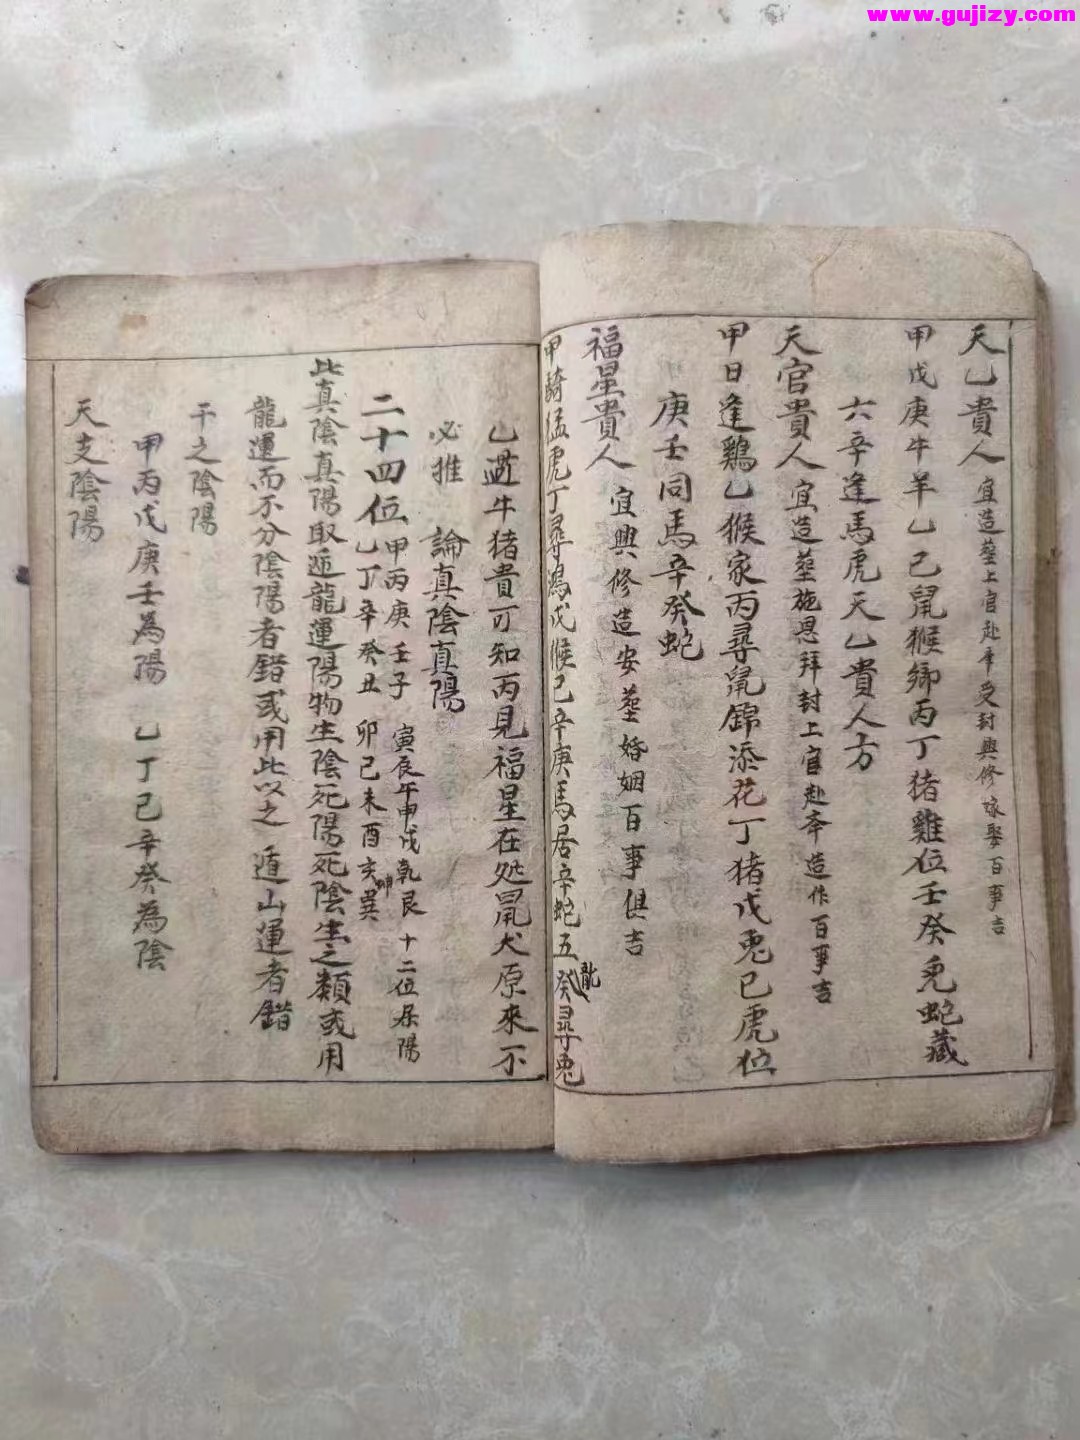 www.gujizy.com
天乙貴人 宜造塟上官赴受封興修嫁娶百事吉
甲戊庚牛羊乙己鼠猴鄉丙丁猪雞位壬癸兎蛇藏
六辛逢馬虎天乙貴人方
天官貴人 宜造塟施恩拜封上官赴造作百事吉
甲日逢鷄乙猴家丙尋鼠錦添花丁猪戊兎己虎位
庚壬同馬辛癸蛇
福星貴人 宜興修造安塟婚姻百事俱吉
甲騎猛虎丁尋鴻戊猴己辛庚馬居辛蛇五癸尋兎
乙逰牛猪貴可知丙見福星在処鼠犬原來不
必推 論真陰真陽
二十四位 甲丙庚壬子寅辰午申戌乾艮十二位居陽
乙丁辛癸丑卯巳未酉亥坤巽
此真陰真陽取遁龍運陽物生陰死陽死陰生之類或用
龍運而不分陰陽者錯或用此以之遁山運者錯
干之陰陽
甲丙戊庚壬為陽 乙丁己辛癸為陰
天支陰陽